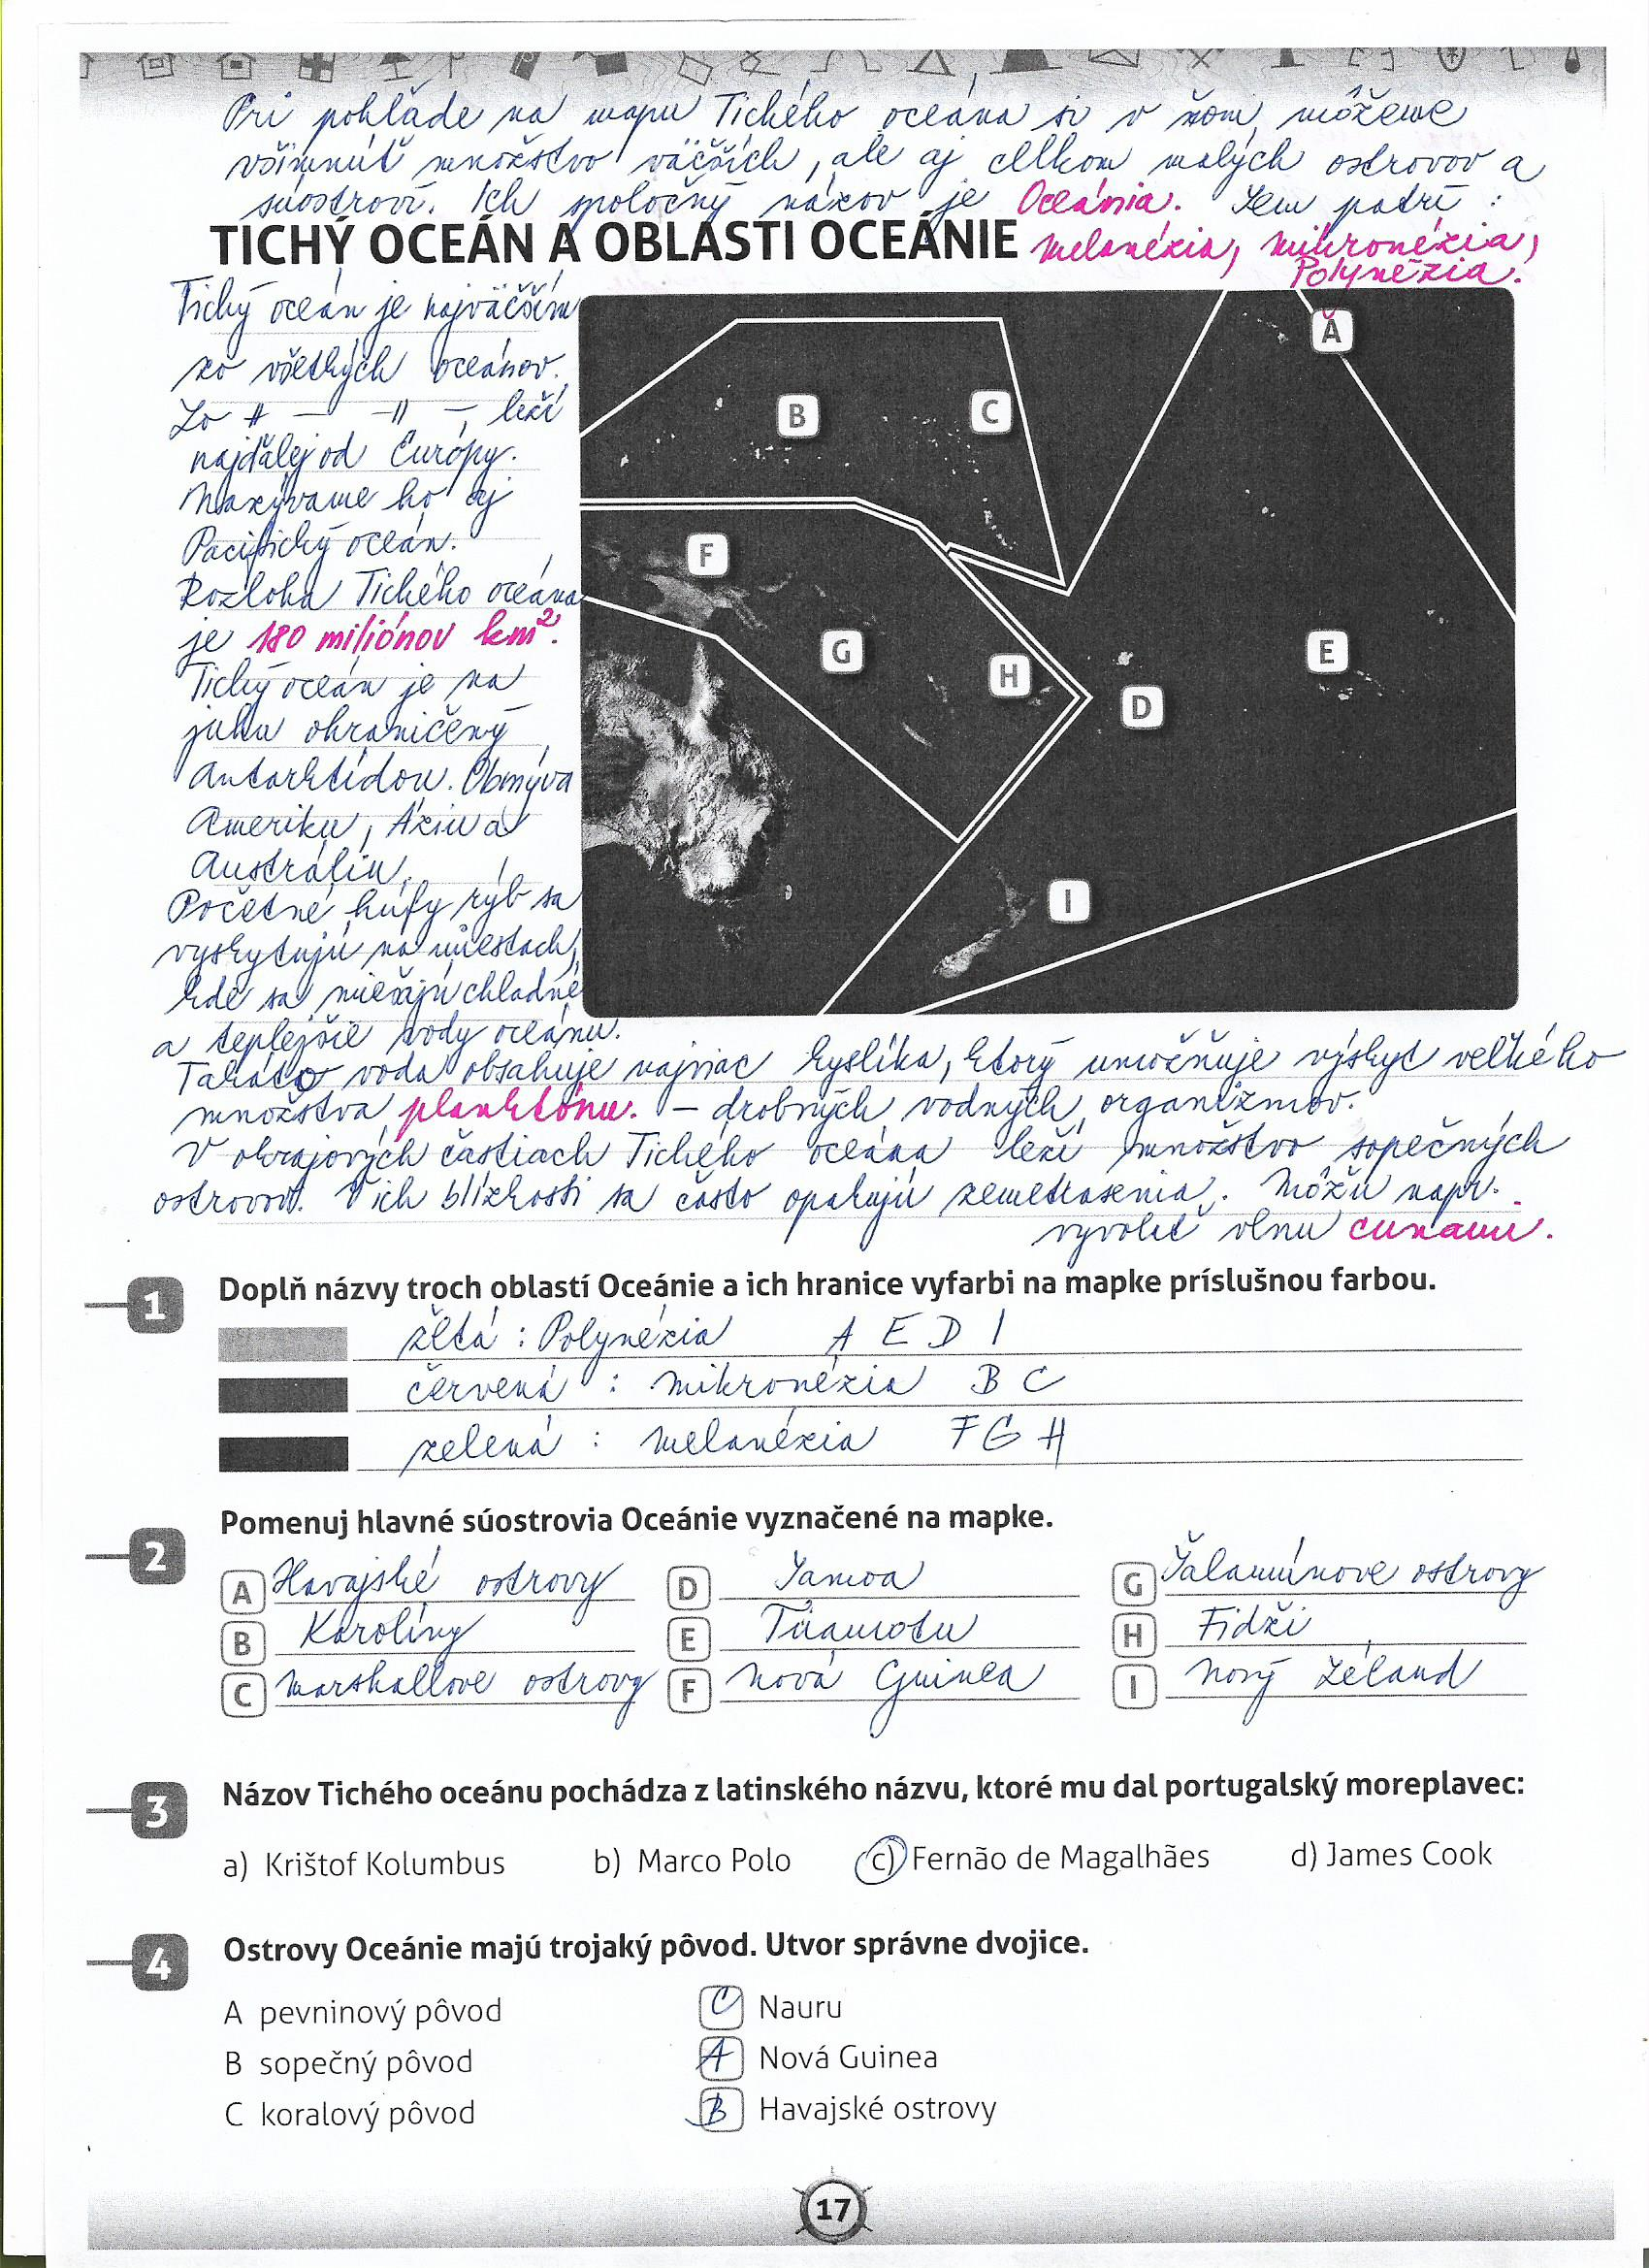 Pri pohľade na mapu Tichého oceána si v ňom môžeme
všimnúť množstvo väčších, ale aj celkom malých ostrovov a
súostroví. Ich spoločný názov je Oceánia. Sem patrí :
TICHÝ OCEÁN A OBLASTI OCEÁNIE
Melanézia, Mikronézia,
Polynézia.
Tichý oceán je najväčším
zo všetkých oceánov.
Zo -||- -||-, leží
najďalej od Európy.
Nazývame ho aj
Pacifický oceán.
Rozloha Tichého oceána
je 180 miliónov km².
Tichý oceán je na
juhu ohraničený
Antarktídou. Obmýva
Ameriku, Áziu a
Austráliu.
Početné húfy rýb sa
vyskytujú na miestach,
kde sa miešajú chladné
a teplejšie vody oceánu.
Takáto voda obsahuje najviac kyslíka, ktorý umožňuje výskyt veľkého
množstva planktónu. – drobných vodných organizmov.
V okrajových častiach Tichého oceána leží množstvo sopečných
ostrovov. V ich blízkosti sa často opakujú zemetrasenia. Môžu napr.
vyvolať vlnu cunami.
A
B
C
F
G
H
E
D
I
1 Doplň názvy troch oblastí Oceánie a ich hranice vyfarbi na mapke príslušnou farbou.
žltá : Polynézia A E D I
červená : Mikronézia B C
zelená : Melanézia F G H
2 Pomenuj hlavné súostrovia Oceánie vyznačené na mapke.
A Havajské ostrovy D Samoa G Šalamúnove ostrovy
B Karolíny E Tuamotu H Fidži
C Marshallove ostrovy F Nová Guinea I Nový Zéland
3 Názov Tichého oceánu pochádza z latinského názvu, ktoré mu dal portugalský moreplavec:
a) Krištof Kolumbus b) Marco Polo c) Fernão de Magalhães d) James Cook
4 Ostrovy Oceánie majú trojaký pôvod. Utvor správne dvojice.
A pevninový pôvod C Nauru
B sopečný pôvod A Nová Guinea
C koralový pôvod B Havajské ostrovy
17